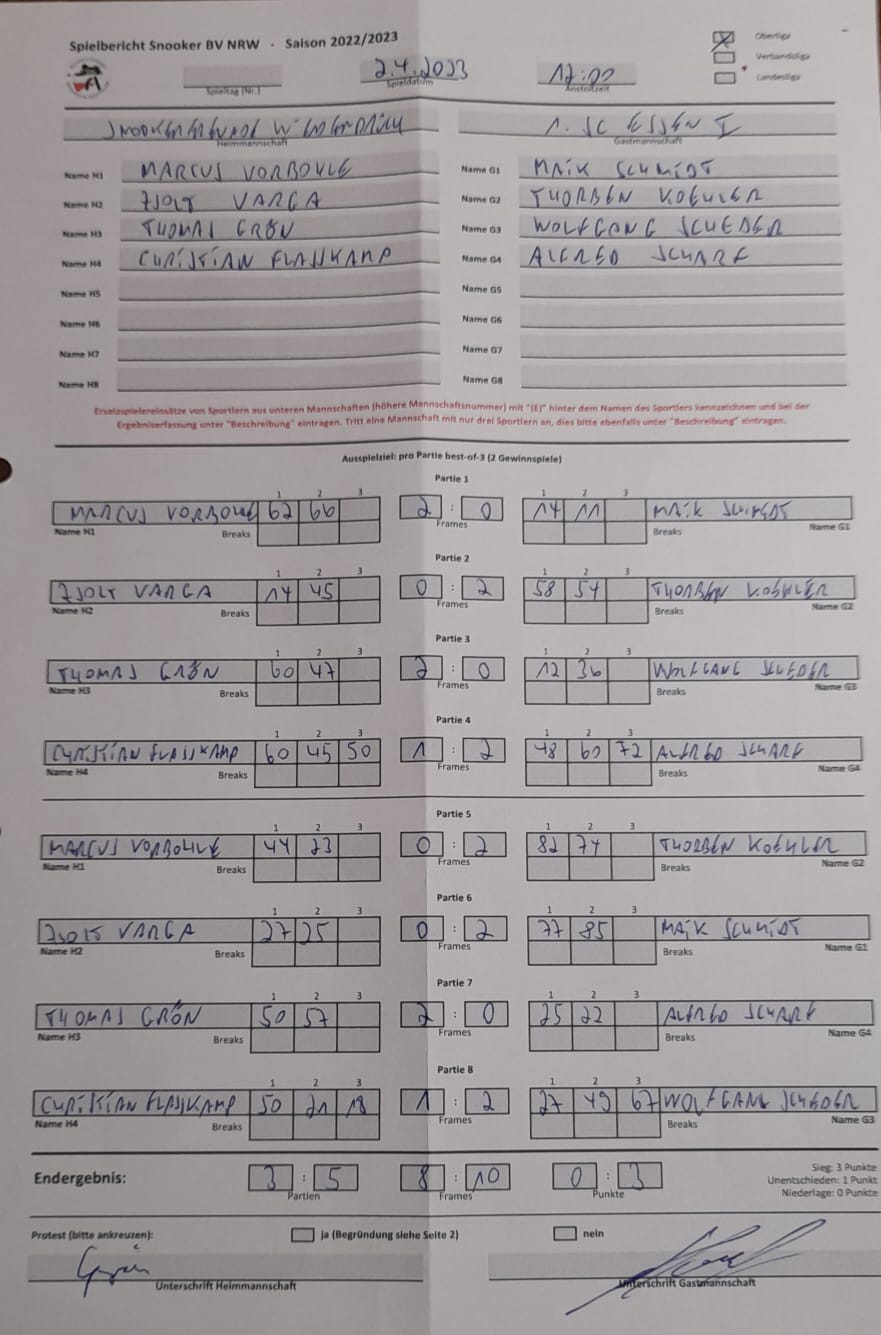 Spielbericht Snooker BV NRW - Saison 2022/2023
Oberliga
Verbandsliga
Landesliga
2.4.2023 12:00
Spieltag (Nr.) Spieldatum Anstoßzeit
1. SC ESSEN I
Heimmannschaft Gastmannschaft
Name H1 MARCUS VORBOHLE Name G1 MAIK SCHMIDT
Name H2 ZSOLT VARGA Name G2 THORBEN KOEHLER
Name H3 THOMAS GRÖN Name G3 WOLFGANG SCHEDER
Name H4 CHRISTIAN FLASSKAMP Name G4 ALFRED SCHARF
Name H5 Name G5
Name H6 Name G6
Name H7 Name G7
Name H8 Name G8
Ersatzspielereinsätze von Sportlern aus unteren Mannschaften (höhere Mannschaftsnummer) mit "(E)" hinter dem Namen des Sportlers kennzeichnen und bei der
Ergebniserfassung unter "Beschreibung" eintragen. Tritt eine Mannschaft mit nur drei Sportlern an, dies bitte ebenfalls unter "Beschreibung" eintragen.
Ausspielziel: pro Partie best-of-3 (2 Gewinnspiele)
Partie 1
1 2 3 1 2 3
MARCUS VORBOHLE 62 66 2 : 0 14 11 MAIK SCHMIDT
Name H1 Breaks Frames Breaks Name G1
Partie 2
1 2 3 1 2 3
ZSOLT VARGA 14 45 0 : 2 58 54 THORBEN KOEHLER
Name H2 Breaks Frames Breaks Name G2
Partie 3
1 2 3 1 2 3
THOMAS GRÖN 60 47 2 : 0 12 36 WOLFGANG SCHEDER
Name H3 Breaks Frames Breaks Name G3
Partie 4
1 2 3 1 2 3
CHRISTIAN FLASSKAMP 60 45 50 1 : 2 48 60 72 ALFRED SCHARF
Name H4 Breaks Frames Breaks Name G4
Partie 5
1 2 3 1 2 3
MARCUS VORBOHLE 44 23 0 : 2 82 74 THORBEN KOEHLER
Name H1 Breaks Frames Breaks Name G2
Partie 6
1 2 3 1 2 3
ZSOLT VARGA 27 25 0 : 2 77 85 MAIK SCHMIDT
Name H2 Breaks Frames Breaks Name G1
Partie 7
1 2 3 1 2 3
THOMAS GRÖN 50 57 2 : 0 25 22 ALFRED SCHARF
Name H3 Breaks Frames Breaks Name G4
Partie 8
1 2 3 1 2 3
CHRISTIAN FLASSKAMP 50 21 18 1 : 2 27 49 67 WOLFGANG SCHEDER
Name H4 Breaks Frames Breaks Name G3
Endergebnis: 3 : 5 8 : 10 0 : 3
Partien Frames Punkte
Sieg: 3 Punkte
Unentschieden: 1 Punkt
Niederlage: 0 Punkte
Protest (bitte ankreuzen): ja (Begründung siehe Seite 2) nein
Unterschrift Heimmannschaft Unterschrift Gastmannschaft